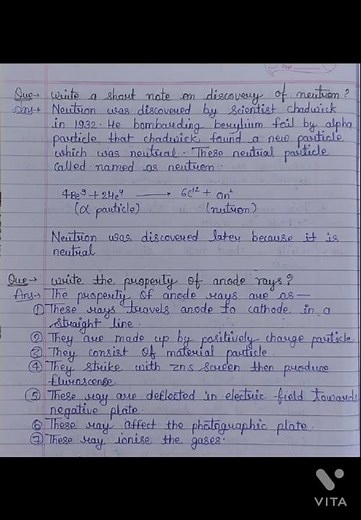 Que→ Write a short note on discovery of neutron?
Ans→ Neutron was discovered by scientist chadwick
in 1932. He bombarding berylium foil by alpha
particle that chadwick found a new particle
which was neutral. These neutral particle
called named as neutron.
4Be⁹ + 2He⁴ ⟶ 6C¹² + 0n¹
(α particle) (nutron)
Neutron was discovered later because it is
neutral
Que→ write the property of anode rays?
Ans→ The property of anode rays are as—
① These rays travels anode to cathode in a
straight line.
② They are made up by positively charge particle
③ They consist of material particle.
④ They strike with zns screen then produce
⑤ These ray are deflected in electric field toward
negative plate.
⑥ These ray affect the photographic plate.
⑦ These ray ionise the gases.
VITA